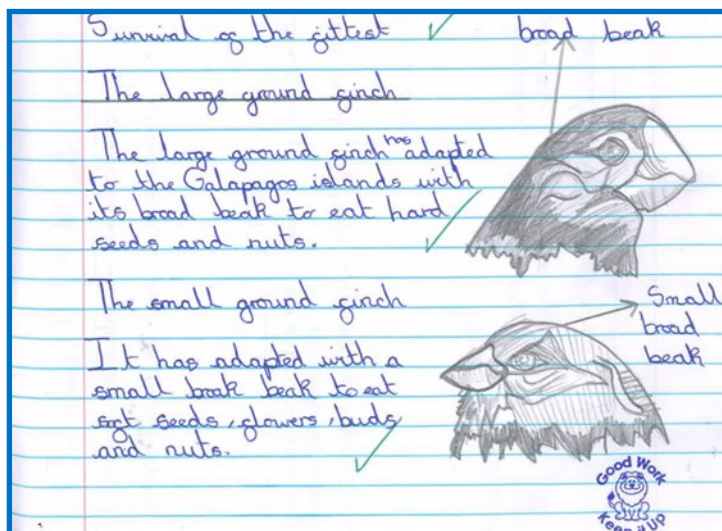 Survival of the fittest
broad beak
The large ground finch
The large ground finch has adapted
to the Galapagos islands with
its broad beak to eat hard
seeds and nuts.
The small ground finch
Small
broad
beak
It has adapted with a
small broak beak to eat
soft seeds, flowers, buds
and nuts.
Good Work
Keep it up